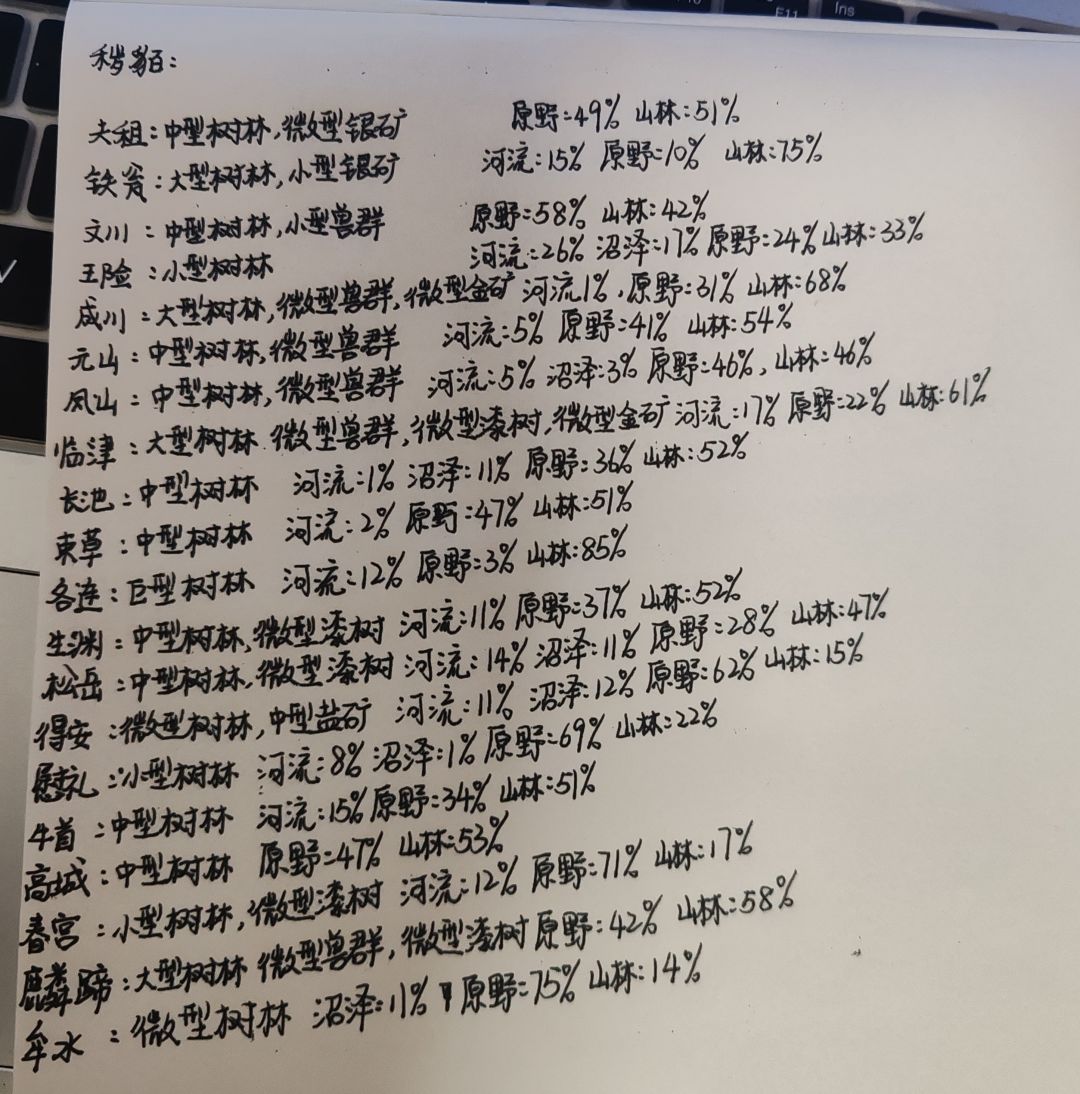 Ins
F11
秽貊:
夫租:中型树林,微型银矿 原野:49% 山林:51%
铁瓮:大型树林,小型银矿 河流:15% 原野:10% 山林:75%
文川:中型树林,小型兽群 原野:58% 山林:42%
王险:小型树林 河流:26% 沼泽:17% 原野:24% 山林:33%
成川:大型树林,微型兽群,微型金矿 河流1%,原野:31% 山林:68%
元山:中型树林,微型兽群 河流:5% 原野:41% 山林:54%
凤山:中型树林,微型兽群 河流:5% 沼泽:3% 原野:46%,山林:46%
临津:大型树林 微型兽群,微型漆树,微型金矿 河流:17% 原野:22% 山林:61%
长池:中型树林 河流:1% 沼泽:11% 原野:36% 山林:52%
束草:中型树林 河流:2% 原野:47% 山林:51%
各连:巨型树林 河流:12% 原野:3% 山林:85%
生渊:中型树林,微型漆树 河流:11% 原野:37% 山林:52%
松岳:中型树林,微型漆树 河流:14% 沼泽:11% 原野:28% 山林:47%
得安:微型树林,中型盐矿 河流:11% 沼泽:12% 原野:62% 山林:15%
慰礼:小型树林 河流:8% 沼泽:1% 原野:69% 山林:22%
牛首:中型树林 河流:15% 原野:34% 山林:51%
高城:中型树林 原野:47% 山林:53%
春宫:小型树林,微型漆树 河流:12% 原野:71% 山林:17%
麟蹄:大型树林 微型兽群,微型漆树 原野:42% 山林:58%
牟水:微型树林 沼泽:11% 原野:75% 山林:14%